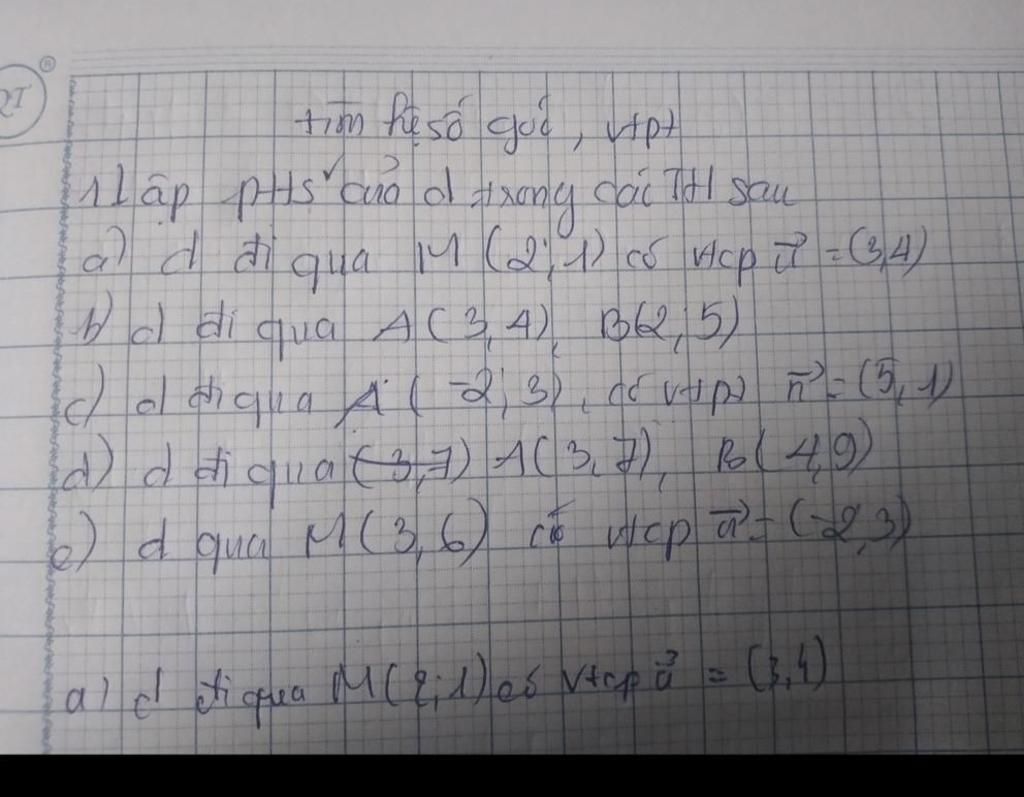 tìm hệ số góc, vtpt
1) Lập ptTS của d trong các TH sau
a) d đi qua M (2; 1) có vtcp u⃗ = (3,4)
b) d đi qua A (3, 4), B(2; 5)
c) d đi qua A (-2; 3), có vtpt n⃗ = (5, 1)
d) d đi qua (3,7) A (3, 7), B (4,9)
e) d qua M (3, 6) có vtcp u⃗ = (-2,3)
a) d đi qua M (2; 1) có vtcp u⃗ = (3,4)